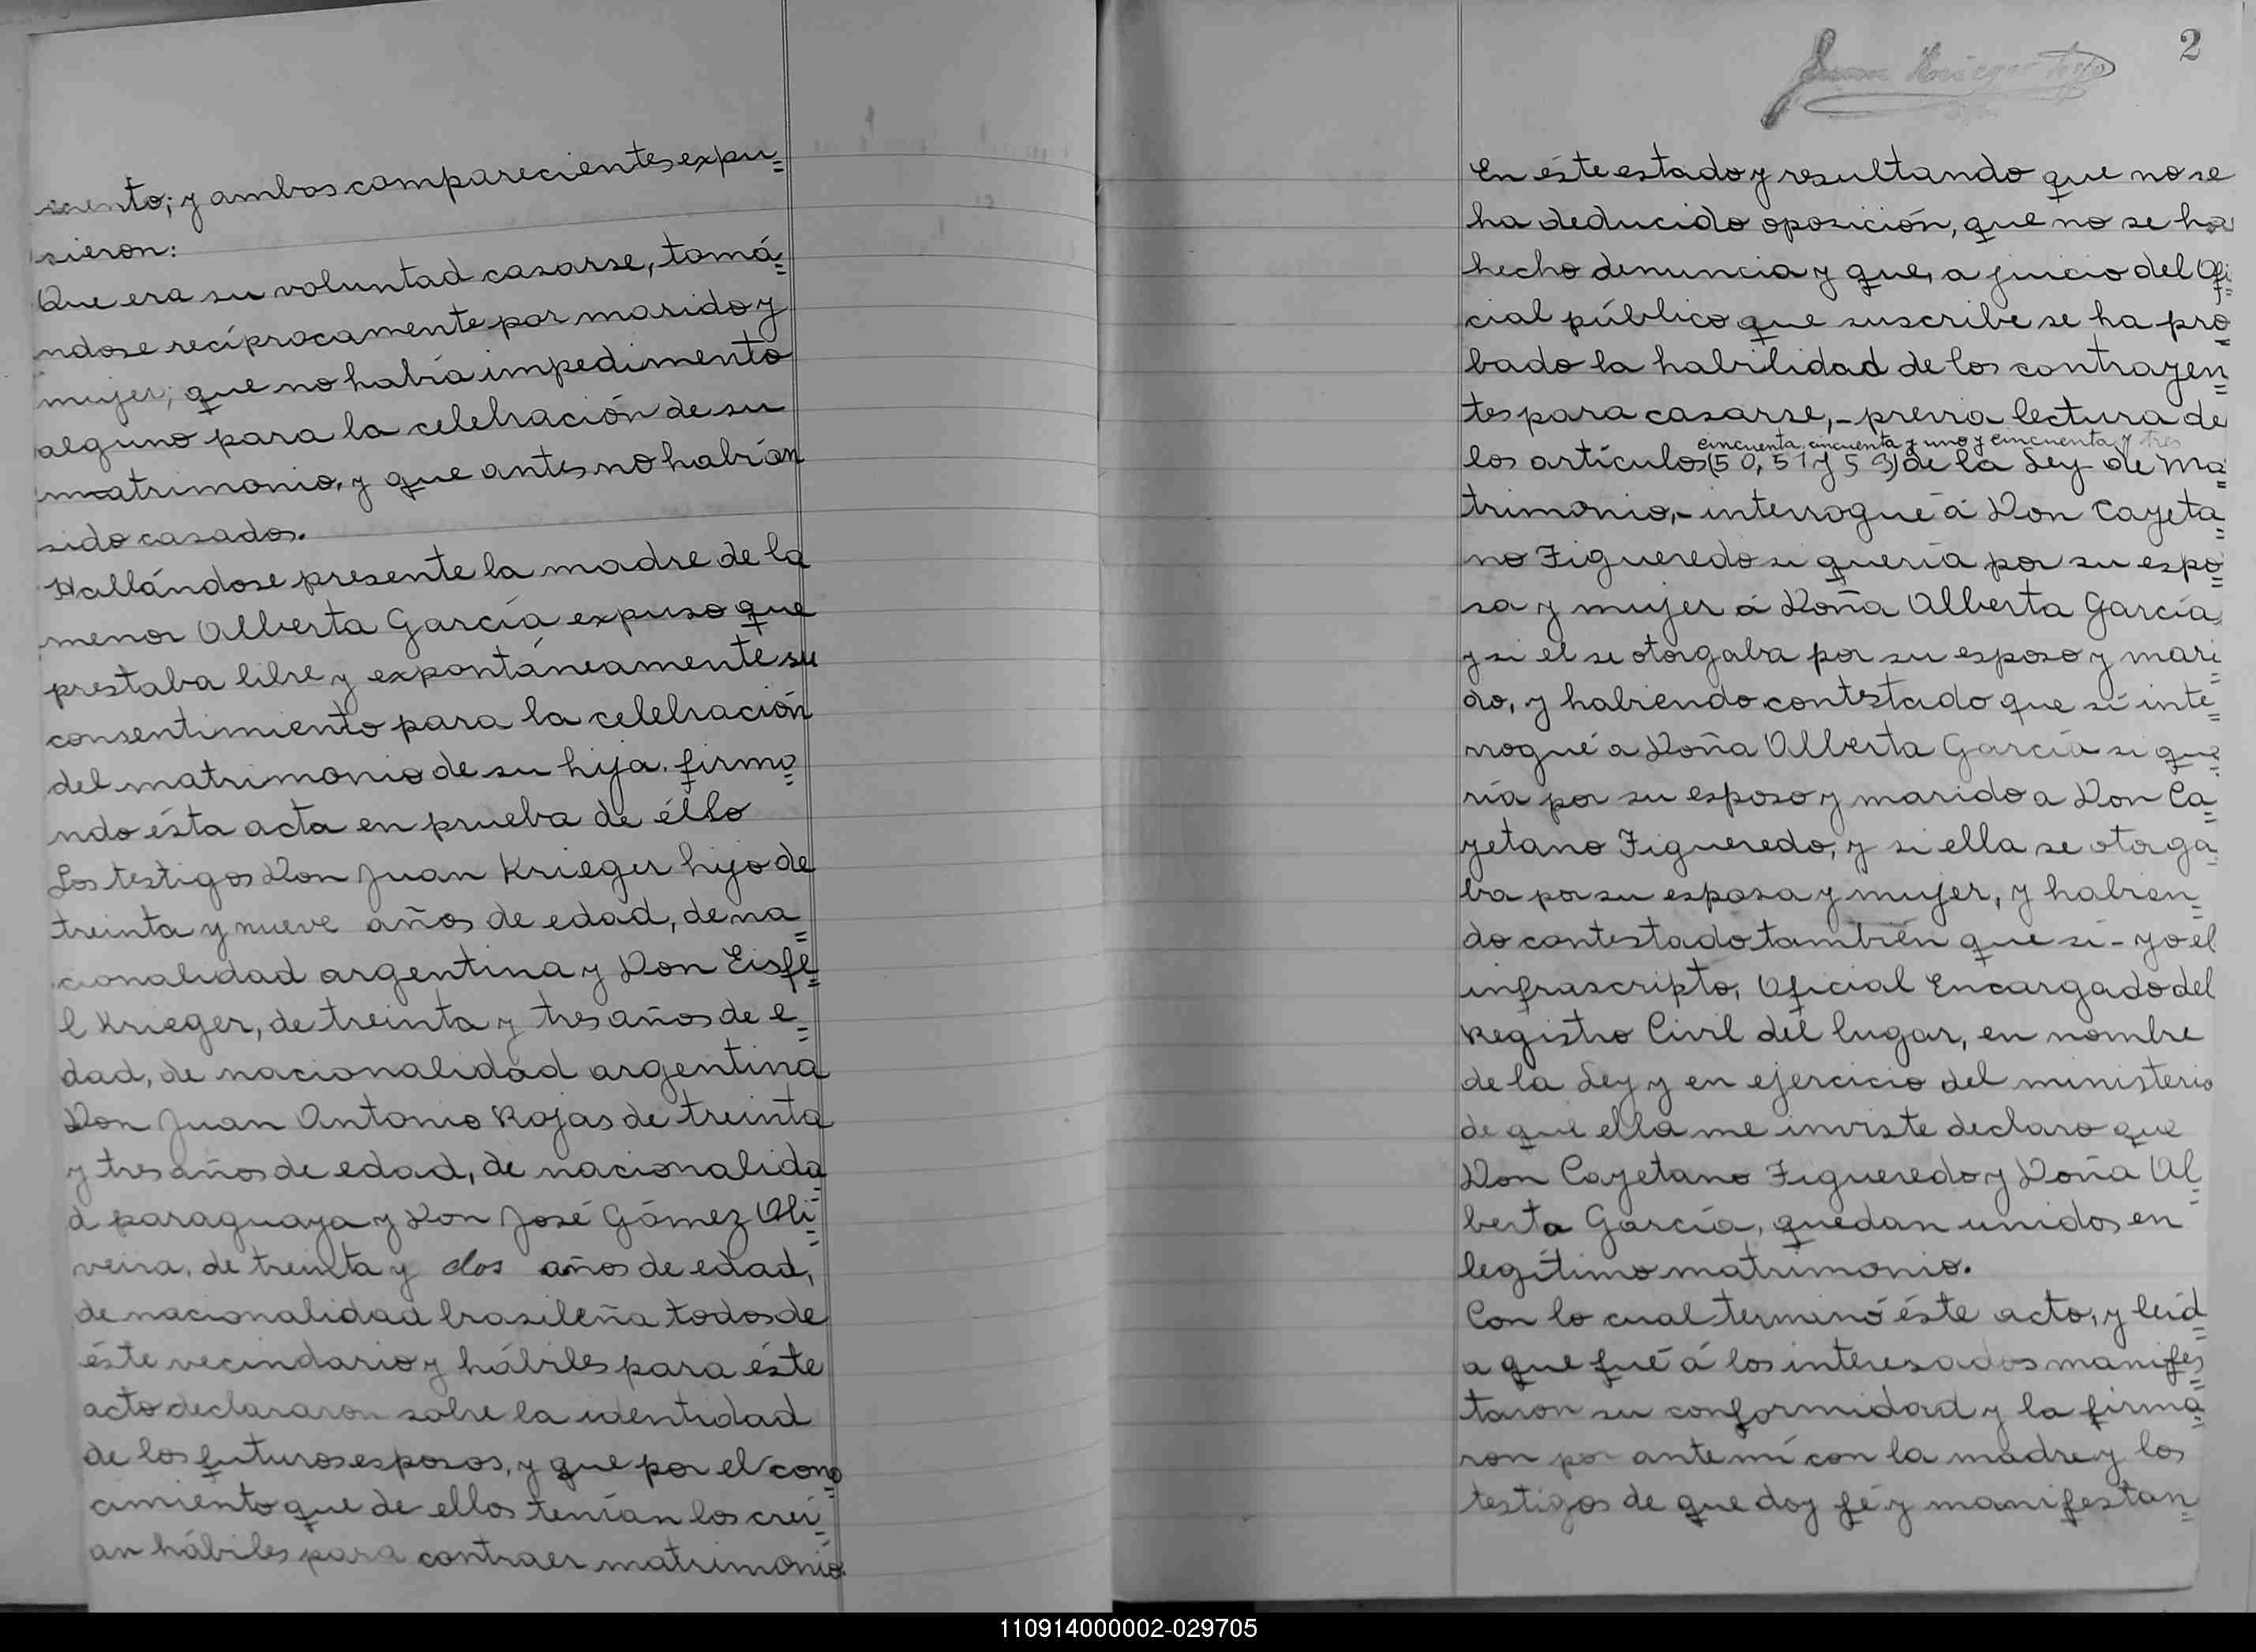 mento; y ambos comparecientes expu=
sieron:
Que era su voluntad casarse, tomá=
ndose recíprocamente por marido y
mujer; que no había impedimento
alguno para la celebración de su
matrimonio, y que antes no habían
sido casados.
Hallándose presente la madre de la
menor Alberta García expuso que
prestaba libre y expontáneamente su
consentimiento para la celebración
del matrimonio de su hija. firma=
ndo ésta acta en prueba de éllo
Los testigos Don Juan Krieger hijo de
treinta y nueve años de edad, de na=
cionalidad argentina y Don Eisfe=
l Krieger, de treinta y tres años de e=
dad, de nacionalidad argentina
Don Juan Antonio Rojas de treinta
y tres años de edad, de nacionalida=
d paraguaya y Don José Gómez Oli=
veira, de treinta y dos años de edad,
de nacionalidad brasileña todos de
éste vecindario y hábiles para éste
acto declararon sobre la identidad
de los futuros esposos, y que por el cono=
cimiento que de ellos tenían los creí=
an hábiles para contraer matrimonio.
2
Juan Krieger hijo
En éste estado y resultando que no se
ha deducido oposición, que no se ha
hecho denuncia y que, a juicio del Ofi=
cial público que suscribe se ha pro=
bado la habilidad de los contrayen=
tes para casarse,- previa lectura de
cincuenta, cincuenta y uno y cincuenta y tres
los artículos (50, 51 y 53) de la Ley de Ma=
trimonio,- interrogué á Don Cayeta=
no Figueredo si quería por su espo=
sa y mujer á Doña Alberta García,
y si el se otorgaba por su esposo y mari=
do, y habiendo contestado que sí inte=
rrogué a Doña Alberta García si que=
ría por su esposo y marido a Don Ca=
yetano Figueredo, y si ella se otorga=
ba por su esposa y mujer, y habien=
do contestado también que si- yo el
infrascripto, Oficial Encargado del
Registro Civil del lugar, en nombre
de la Ley y en ejercicio del ministerio
de que ella me inviste declaro que
Don Cayetano Figueredo y Doña Al=
berta García, quedan unidos en
legítimo matrimonio.
Con lo cual terminó éste acto, y leíd=
a que fué á los interesados manifes=
taron su conformidad y la firma=
ron por ante mí con la madre y los
testigos de que doy fé y manifestan=
110914000002-029705